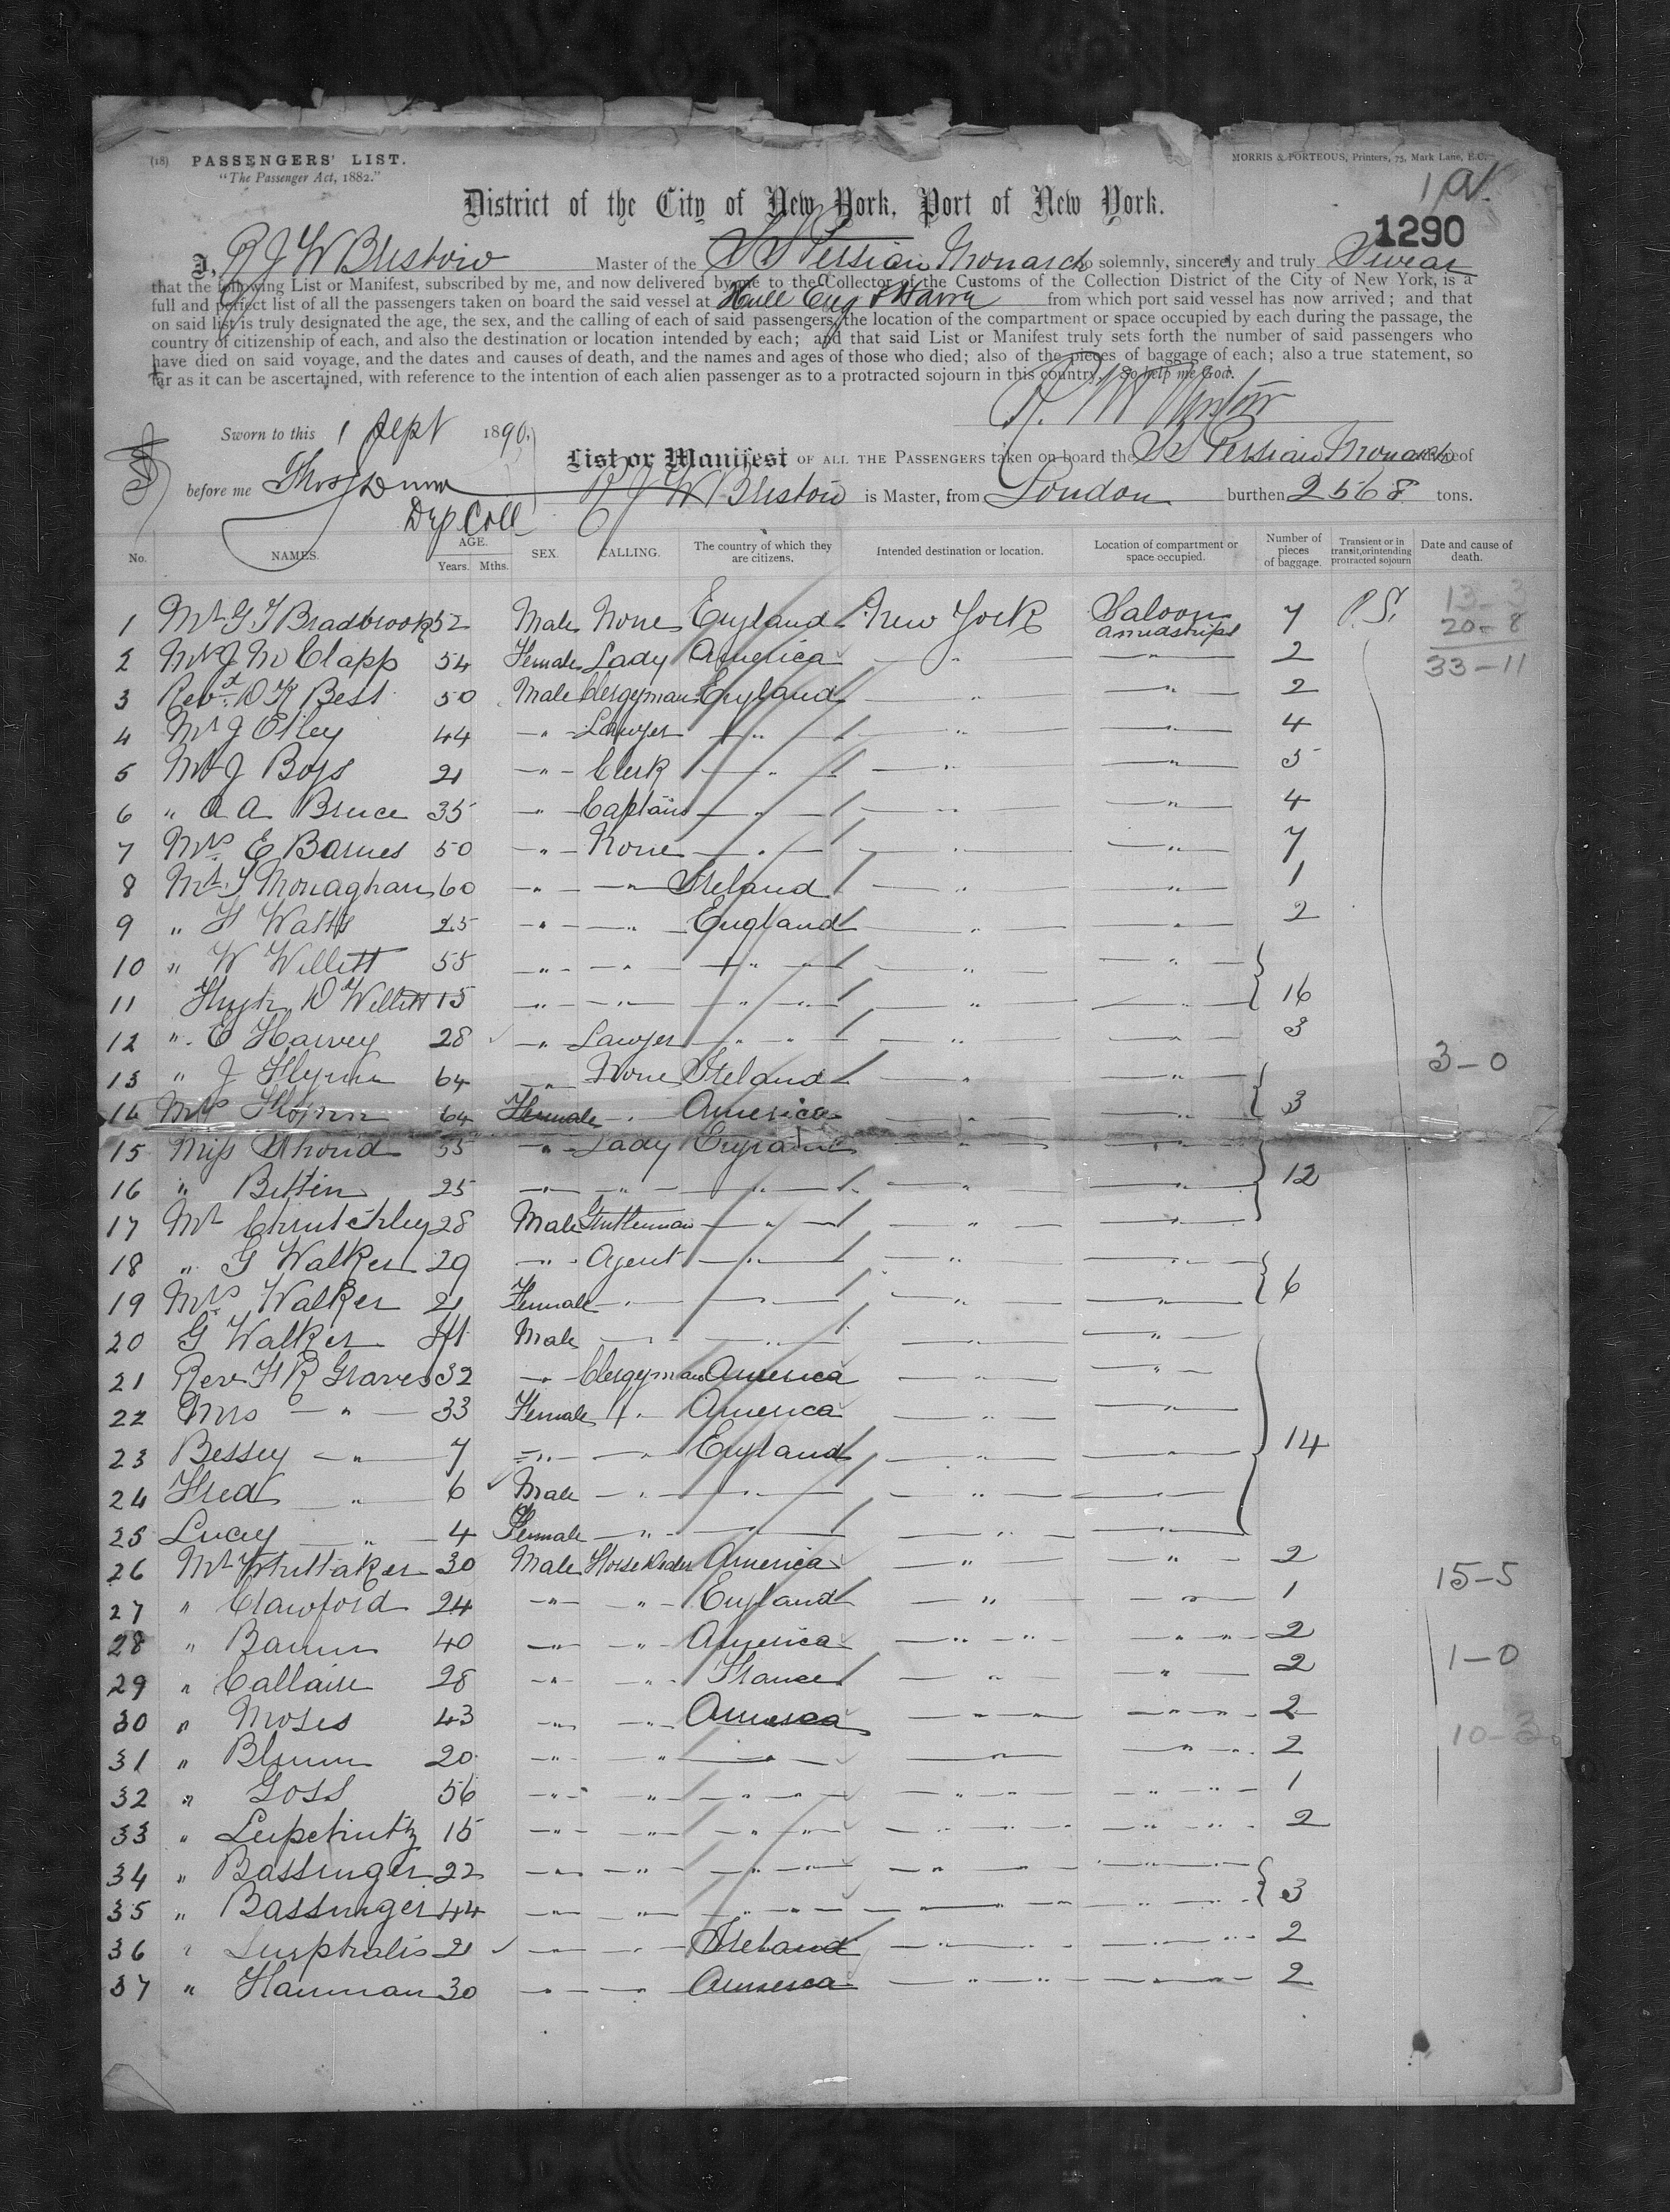 (18) PASSENGERS' LIST. MORRIS & PORTEOUS, Printers, 75, Mark Lane, E.C.
"The Passenger Act, 1882."
District of the City of New York, Port of New York.
1290
I, R J W Bristow Master of the SS Persian Monarch do solemnly, sincerely and truly Swear
that the following List or Manifest, subscribed by me, and now delivered by me to the Collector of the Customs of the Collection District of the City of New York, is a
full and perfect list of all the passengers taken on board the said vessel at Hull Eng & from which port said vessel has now arrived; and that
on said list is truly designated the age, the sex, and the calling of each of said passengers, the location of the compartment or space occupied by each during the passage, the
country of citizenship of each, and also the destination or location intended by each; and that said List or Manifest truly sets forth the number of said passengers who
have died on said voyage, and the dates and causes of death, and the names and ages of those who died; also of the pieces of baggage of each; also a true statement, so
far as it can be ascertained, with reference to the intention of each alien passenger as to a protracted sojourn in this country. So help me God.
Sworn to this 1 Sept 1890,
List or Manifest OF ALL THE PASSENGERS taken on board the SS Persian Monarch whereof
before me Thos J Dunn R J W Bristow is Master, from London burthen 2568 tons.
Dep Coll
No. NAMES. AGE. Years. Mths. SEX. CALLING. The country of which they are citizens. Intended destination or location. Location of compartment or space occupied. Number of pieces of baggage. Transient or in transit, or intending protracted sojourn Date and cause of death.
1 Mr G T Bradbrook 52 Male None England New York Saloon Amidships 7 P.S. 13-3
20-8
2 Mrs J M Clapp 54 Female Lady America " " 2 33-11
3 Revd. D K Best 50 Male Clergyman England " " 2
4 Mr J Otley 44 " Lawyer " " " 4
5 Mr J Boys 21 " Clerk " " " 5
6 " A A Bruce 35 " Captain " " " 4
7 Mrs E Barnes 50 " None " " " 7
8 Mr T Monaghan 60 " " Ireland " " 1
9 " F Watts 25 " " England " " 2
10 " W Willett 55 " " " " "
11 Hugh D Willett 15 " " " " " 16
12 " E Harvey 28 " Lawyer " " " 3
13 " J Flynn 64 " None Ireland " " 3-0
14 Mrs 64 Female " America " " 3
15 Miss 55 " Lady England " "
16 " Bittin 25 " " " " " 12
17 Mr Chrutchley 28 Male Gentleman " " "
18 " G Walker 29 " Agent " " "
19 Mrs Walker 21 Female " " " " 6
20 G Walker Inft Male " " " "
21 Rev F R Graves 32 " Clergyman America " "
22 Mrs " 33 Female " America " "
23 Bessey " 7 " " England " " 14
24 Fred " 6 Male " " " "
25 Lucy " 4 Female " " " "
26 Mr Whittaker 30 Male Horse Dealer America " " 2 15-5
27 " Clawford 24 " " England " " 1
28 " Barnum 40 " " America " " 2
29 " Callaire 28 " " France " " 2 1-0
30 " Moses 43 " " America " " 2
31 " Blumm 20 " " " " " 2 10-3
32 " Goss 56 " " " " " 1
33 " 15 " " " " " 2
34 " Bassinger 22 " " " " "
35 " Bassinger 44 " " " " " 3
36 " 21 " " Ireland " " 2
37 " Hamman 30 " " America " " 2